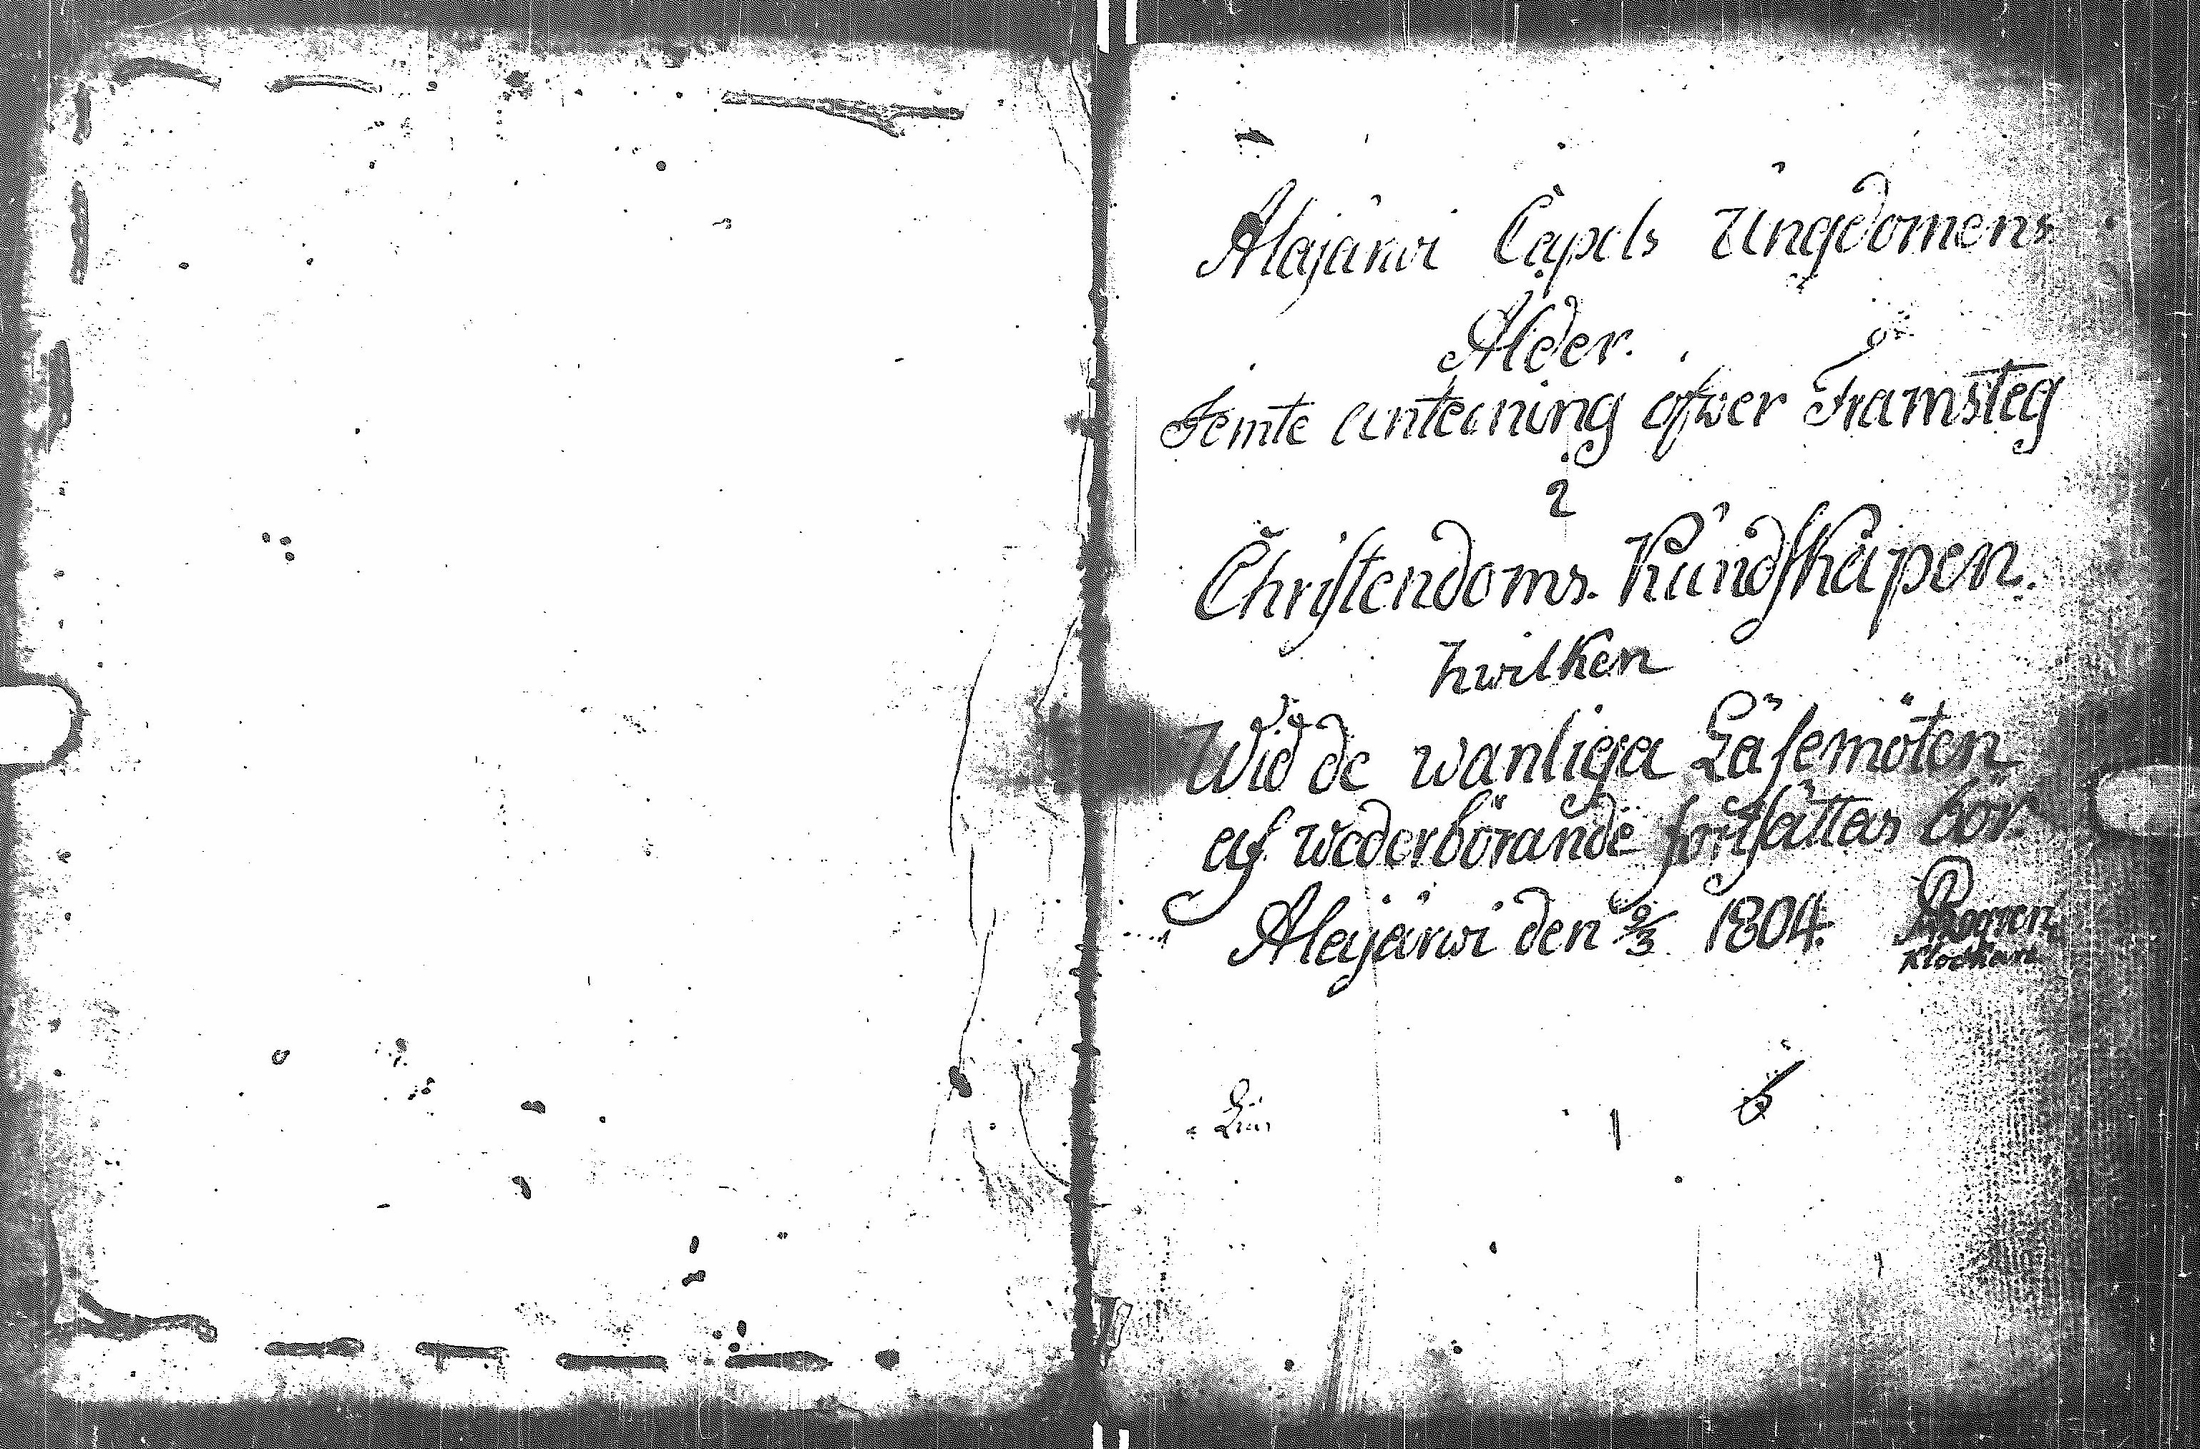 Alajärwi Capels Ungdomens
Ålder.
Jemte antecning öfwer Framsteg
i
Christendoms Kundskapen.
hwilken
Wid de wanliga Läsemöten
af wederbörande fortsättas bör.
Alajärwi den 9/3 1804.
Klockare